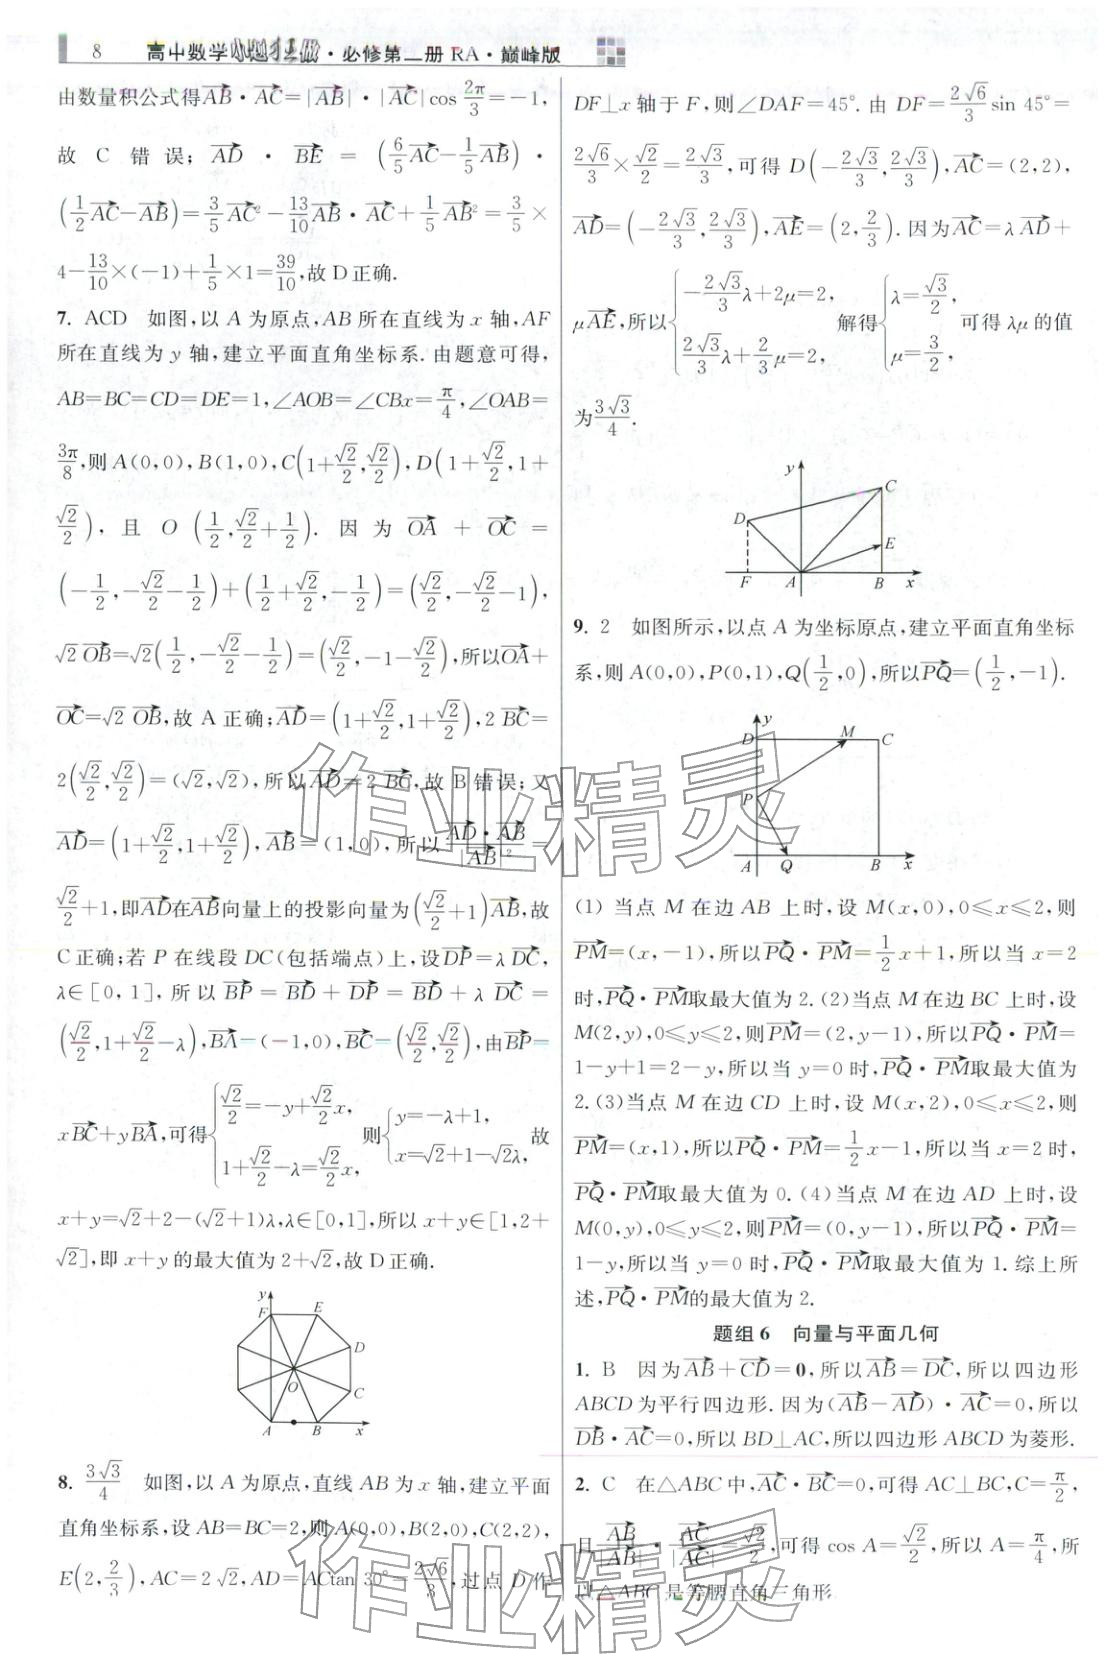 8 高中数学小题狂做·必修第二册 RA·巅峰版
由数量积公式得$\overrightarrow{AB}·\overrightarrow{AC}=|\overrightarrow{AB}|·|\overrightarrow{AC}|\cos\frac{2π}{3}=-1$,
故 C 错误; $\overrightarrow{AD}·\overrightarrow{BE}=\left(\frac{6}{5}\overrightarrow{AC}-\frac{1}{5}\overrightarrow{AB}\right)·$
$\left(\frac{1}{2}\overrightarrow{AC}-\overrightarrow{AB}\right)=\frac{3}{5}\overrightarrow{AC}^2-\frac{13}{10}\overrightarrow{AB}·\overrightarrow{AC}+\frac{1}{5}\overrightarrow{AB}^2=\frac{3}{5}×$
$4-\frac{13}{10}×(-1)+\frac{1}{5}×1=\frac{39}{10}$,故 D 正确.
7. ACD 如图,以 A 为原点,AB 所在直线为 x 轴,AF
所在直线为 y 轴,建立平面直角坐标系.由题意可得,
$AB=BC=CD=DE=1,∠AOB=∠CBx=\frac{π}{4},∠OAB=$
$\frac{3π}{8}$,则 $A(0,0),B(1,0),C\left(1+\frac{\sqrt{2}}{2},\frac{\sqrt{2}}{2}\right),D\left(1+\frac{\sqrt{2}}{2},1+\right.$
$\left.\frac{\sqrt{2}}{2}\right)$,且 $O\left(\frac{1}{2},\frac{\sqrt{2}}{2}+\frac{1}{2}\right)$. 因为 $\overrightarrow{OA}+\overrightarrow{OC}=$
$\left(-\frac{1}{2},-\frac{\sqrt{2}}{2}-\frac{1}{2}\right)+\left(\frac{1}{2}+\frac{\sqrt{2}}{2},-\frac{1}{2}\right)=\left(\frac{\sqrt{2}}{2},-\frac{\sqrt{2}}{2}-1\right)$,
$\sqrt{2}\overrightarrow{OB}=\sqrt{2}\left(\frac{1}{2},-\frac{\sqrt{2}}{2}-\frac{1}{2}\right)=\left(\frac{\sqrt{2}}{2},-1-\frac{\sqrt{2}}{2}\right)$,所以$\overrightarrow{OA}+$
$\overrightarrow{OC}=\sqrt{2}\overrightarrow{OB}$,故 A 正确;$\overrightarrow{AD}=\left(1+\frac{\sqrt{2}}{2},1+\frac{\sqrt{2}}{2}\right),2\overrightarrow{BC}=$
$2\left(\frac{\sqrt{2}}{2},\frac{\sqrt{2}}{2}\right)=(\sqrt{2},\sqrt{2})$,所以$\overrightarrow{AD}=2\overrightarrow{BC}$,故 B 错误;又
$\overrightarrow{AD}=\left(1+\frac{\sqrt{2}}{2},1+\frac{\sqrt{2}}{2}\right),\overrightarrow{AB}=(1,0)$,所以$\frac{\overrightarrow{AD}·\overrightarrow{AB}}{|\overrightarrow{AB}|^2}=$
$\frac{\sqrt{2}}{2}+1$,即$\overrightarrow{AD}$在$\overrightarrow{AB}$向量上的投影向量为$\left(\frac{\sqrt{2}}{2}+1\right)\overrightarrow{AB}$,故
C 正确;若 P 在线段 DC(包括端点)上,设$\overrightarrow{DP}=λ\overrightarrow{DC}$,
$λ∈[0,1]$,所以 $\overrightarrow{BP}=\overrightarrow{BD}+\overrightarrow{DP}=\overrightarrow{BD}+λ\overrightarrow{DC}=$
$\left(\frac{\sqrt{2}}{2},1+\frac{\sqrt{2}}{2}-λ\right),\overrightarrow{BA}=(-1,0),\overrightarrow{BC}=\left(\frac{\sqrt{2}}{2},\frac{\sqrt{2}}{2}\right)$,由$\overrightarrow{BP}=$
$x\overrightarrow{BC}+y\overrightarrow{BA}$,可得$\begin{cases}\frac{\sqrt{2}}{2}=-y+\frac{\sqrt{2}}{2}x,\\1+\frac{\sqrt{2}}{2}-λ=\frac{\sqrt{2}}{2}x,\end{cases}$ 则$\begin{cases}y=-λ+1,\\x=\sqrt{2}+1-\sqrt{2}λ,\end{cases}$ 故
$x+y=\sqrt{2}+2-(\sqrt{2}+1)λ,λ∈[0,1]$,所以 $x+y∈[1,2+$
$\sqrt{2}]$,即 $x+y$ 的最大值为 $2+\sqrt{2}$,故 D 正确.
y
F E
D
O
C
A B x
8. $\frac{3\sqrt{3}}{4}$ 如图,以 A 为原点,直线 AB 为 x 轴,建立平面
直角坐标系,设 $AB=BC=2$,则 $A(0,0),B(2,0),C(2,2)$,
$E\left(2,\frac{2}{3}\right),AC=2\sqrt{2},AD=AC\tan 30°=\frac{2\sqrt{6}}{3}$,过点 D 作
$DF⊥x$ 轴于 F,则$∠DAF=45°$.由 $DF=\frac{2\sqrt{6}}{3}\sin 45°=$
$\frac{2\sqrt{6}}{3}×\frac{\sqrt{2}}{2}=\frac{2\sqrt{3}}{3}$,可得 $D\left(-\frac{2\sqrt{3}}{3},\frac{2\sqrt{3}}{3}\right),\overrightarrow{AC}=(2,2)$,
$\overrightarrow{AD}=\left(-\frac{2\sqrt{3}}{3},\frac{2\sqrt{3}}{3}\right),\overrightarrow{AE}=\left(2,\frac{2}{3}\right)$.因为$\overrightarrow{AC}=λ\overrightarrow{AD}+$
$μ\overrightarrow{AE}$,所以$\begin{cases}-\frac{2\sqrt{3}}{3}λ+2μ=2,\\\frac{2\sqrt{3}}{3}λ+\frac{2}{3}μ=2,\end{cases}$ 解得$\begin{cases}λ=\frac{\sqrt{3}}{2},\\μ=\frac{3}{2},\end{cases}$ 可得 λμ 的值
为$\frac{3\sqrt{3}}{4}$.
y
C
D
E
F A B x
9. 2 如图所示,以点 A 为坐标原点,建立平面直角坐标
系,则 $A(0,0),P(0,1),Q\left(\frac{1}{2},0\right)$,所以$\overrightarrow{PQ}=\left(\frac{1}{2},-1\right)$.
y
D M C
P
A Q B x
(1) 当点 M 在边 AB 上时,设 $M(x,0),0≤x≤2$,则
$\overrightarrow{PM}=(x,-1)$,所以$\overrightarrow{PQ}·\overrightarrow{PM}=\frac{1}{2}x+1$,所以当 $x=2$
时,$\overrightarrow{PQ}·\overrightarrow{PM}$取最大值为 2.(2)当点 M 在边 BC 上时,设
$M(2,y),0≤y≤2$,则$\overrightarrow{PM}=(2,y-1)$,所以$\overrightarrow{PQ}·\overrightarrow{PM}=$
$1-y+1=2-y$,所以当 $y=0$ 时,$\overrightarrow{PQ}·\overrightarrow{PM}$取最大值为
2.(3)当点 M 在边 CD 上时,设 $M(x,2),0≤x≤2$,则
$\overrightarrow{PM}=(x,1)$,所以$\overrightarrow{PQ}·\overrightarrow{PM}=\frac{1}{2}x-1$,所以当 $x=2$ 时,
$\overrightarrow{PQ}·\overrightarrow{PM}$取最大值为 0.(4)当点 M 在边 AD 上时,设
$M(0,y),0≤y≤2$,则$\overrightarrow{PM}=(0,y-1)$,所以$\overrightarrow{PQ}·\overrightarrow{PM}=$
$1-y$,所以当 $y=0$ 时,$\overrightarrow{PQ}·\overrightarrow{PM}$取最大值为 1.综上所
述,$\overrightarrow{PQ}·\overrightarrow{PM}$的最大值为 2.
题组 6 向量与平面几何
1. B 因为$\overrightarrow{AB}+\overrightarrow{CD}=\mathbf{0}$,所以$\overrightarrow{AB}=\overrightarrow{DC}$,所以四边形
ABCD 为平行四边形.因为$(\overrightarrow{AB}-\overrightarrow{AD})·\overrightarrow{AC}=0$,所以
$\overrightarrow{DB}·\overrightarrow{AC}=0$,所以 $BD⊥AC$,所以四边形 ABCD 为菱形.
2. C 在△ABC 中,$\overrightarrow{AC}·\overrightarrow{BC}=0$,可得 $AC⊥BC,C=\frac{π}{2}$,
且$\frac{\overrightarrow{AB}}{|\overrightarrow{AB}|}·\frac{\overrightarrow{AC}}{|\overrightarrow{AC}|}=\frac{\sqrt{2}}{2}$,可得 $\cos A=\frac{\sqrt{2}}{2}$,所以 $A=\frac{π}{4}$,所
以△ABC 是等腰直角三角形.
作业精灵
作业精灵